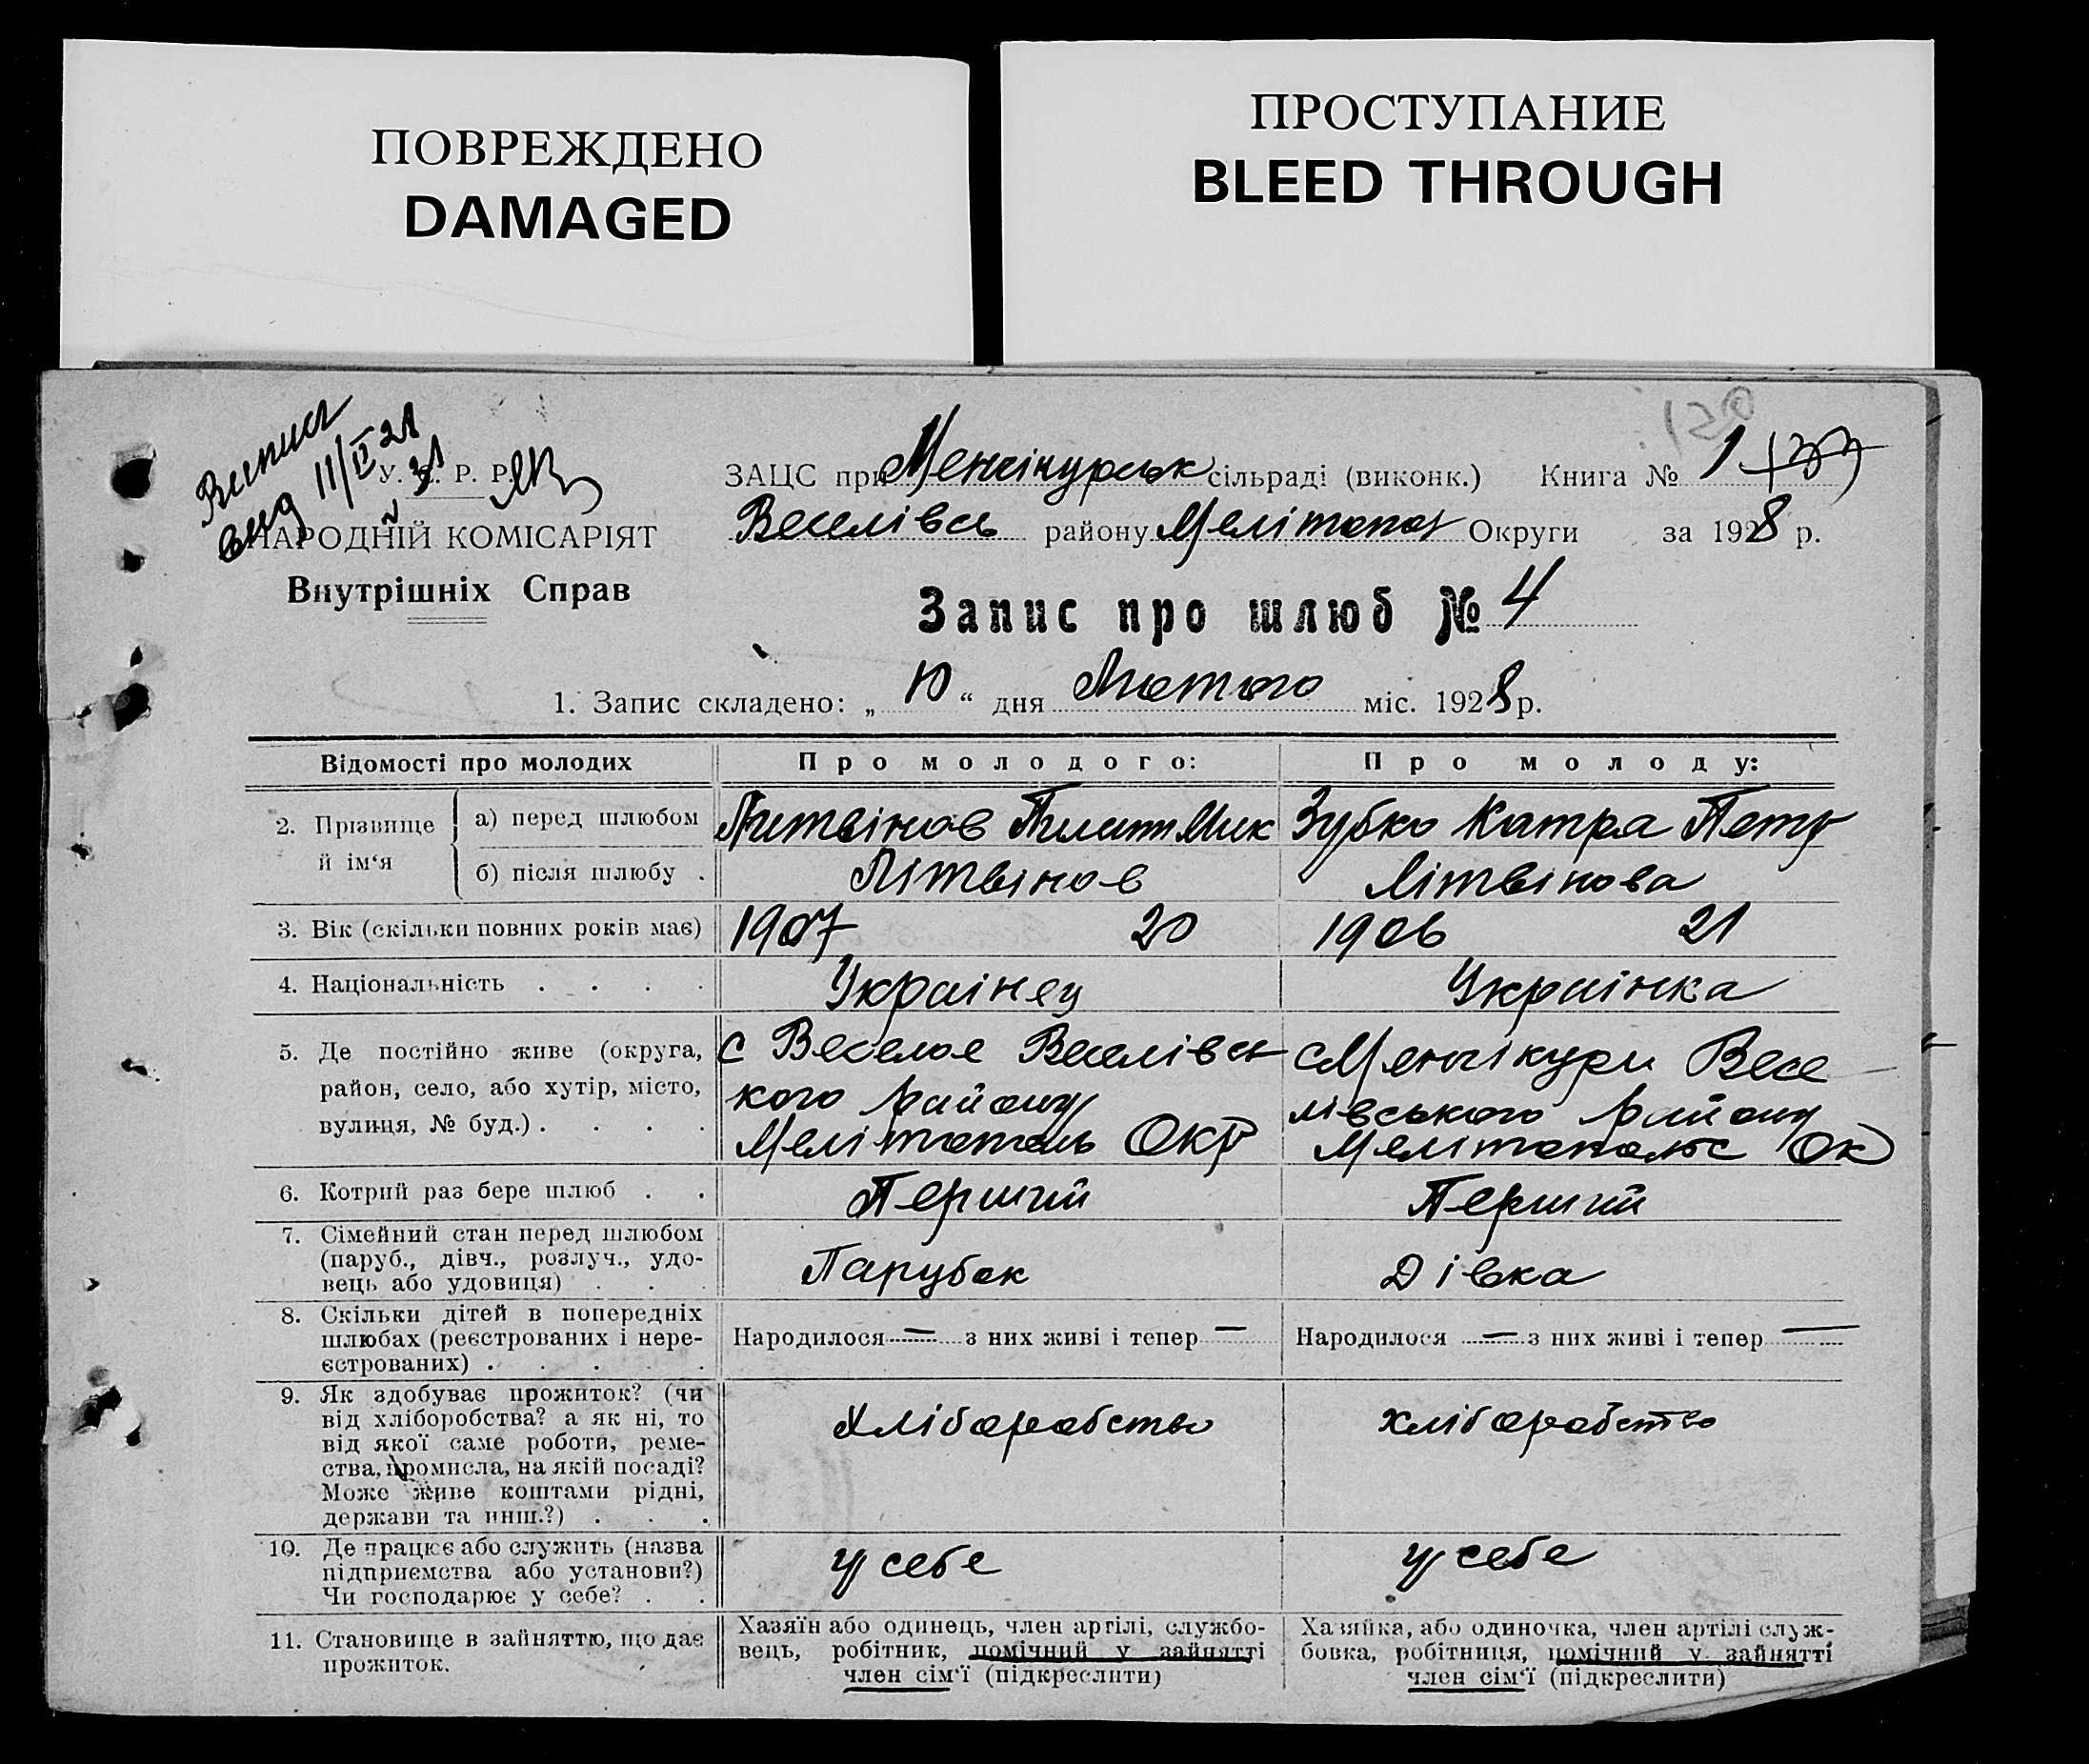 ПОВРЕЖДЕНО
DAMAGED
ПРОСТУПАНИЕ
BLEED THROUGH
У. С. Р. Р.
НАРОДНІЙ КОМІСАРІЯТ
Внутрішніх Справ
ЗАЦС при Менчікурськ сільраді (виконк.) Книга № 1
Веселівсь району Мелітопол Округи за 1928 р.
Запис про шлюб № 4
1. Запис складено: „ 10 “ дня Лютого міс. 1928 р.
Відомості про молодих
Про молодого:
Про молоду:
2. Прізвище й ім‘я
а) перед шлюбом
Литвінов Пилип Мик
Зубко Катря Петр
б) після шлюбу .
Літвінов
Літвінова
3. Вік (скільки повних років має)
1907 20
1906 21
4. Національність . . . .
Украінец
Украінка
5. Де постійно живе (округа,
район, село, або хутір, місто,
вулиця, № буд.) . . . .
с Веселое Веселівсь
кого району
Мелітополь Окр
с Менчікури Весе
лівського району
Мелітопольс Ок
6. Котрий раз бере шлюб . .
Перший
Перший
7. Сімейний стан перед шлюбом
(паруб., дівч., розлуч., удо-
вець або удовиця) . . .
Парубок
Дівка
8. Скільки дітей в попередніх
шлюбах (реєстрованих і нере-
єстрованих) . . . . .
Народилося — з них живі і тепер —
Народилося — з них живі і тепер —
9. Як здобуває прожиток? (чи
від хліборобства? а як ні, то
від якої саме роботи, реме-
ства, промисла, на якій посаді?
Може живе коштами рідні,
держави та инш.?) . . .
Хліборобство
Хліборобство
10. Де працює або служить (назва
підприємства або установи?)
Чи господарює у себе? . .
у себе
у себе
11. Становище в зайняттю, що дає
прожиток.
Хазяїн або одинець, член артілі, службо-
вець, робітник, помічний у зайнятті
член сім‘ї (підкреслити)
Хазяйка, або одиночка, член артілі служ-
бовка, робітниця, помічний у зайнятті
член сім‘ї (підкреслити)